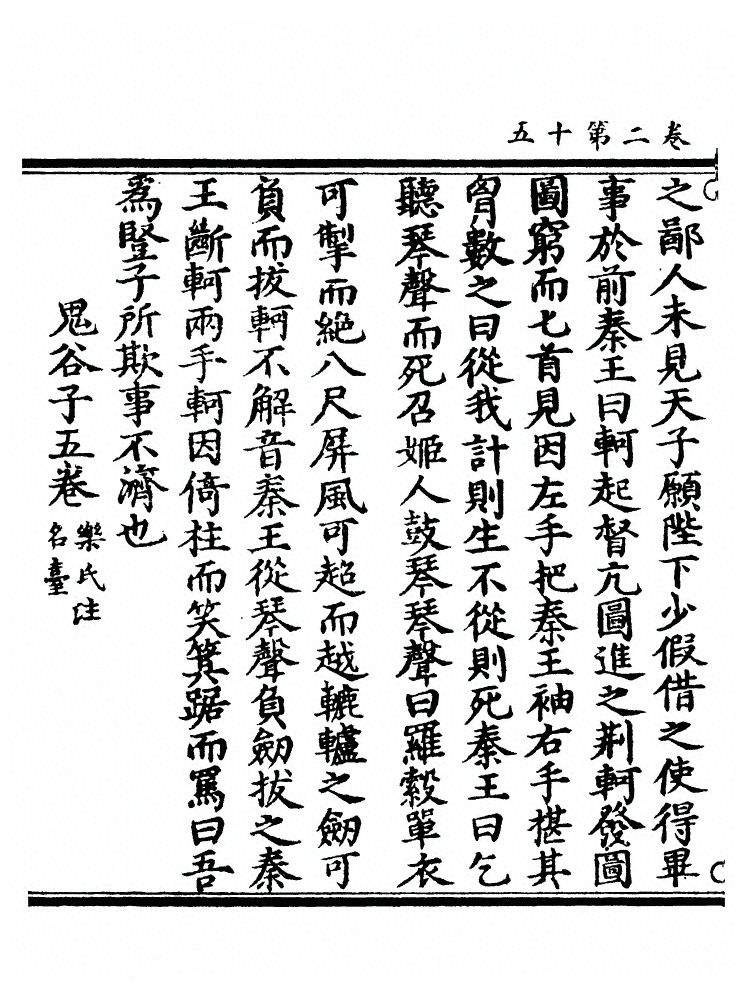 卷二第十五
之鄙人未見天子願陛下少假借之使得畢
事於前秦王曰軻起督亢圖進之荆軻發圖
圖窮而匕首見因左手把秦王袖右手揕其
胷數之曰從我計則生不從則死秦王曰乞
聽琴聲而死召姬人鼓琴琴聲曰羅縠單衣
可掣而絶八尺屏風可超而越轆轤之劒可
負而拔軻不解音秦王從琴聲負劒拔之秦
王斷軻兩手軻因倚柱而笑箕踞而罵曰吾
爲豎子所欺事不濟也
鬼谷子五卷
樂氏注
名臺